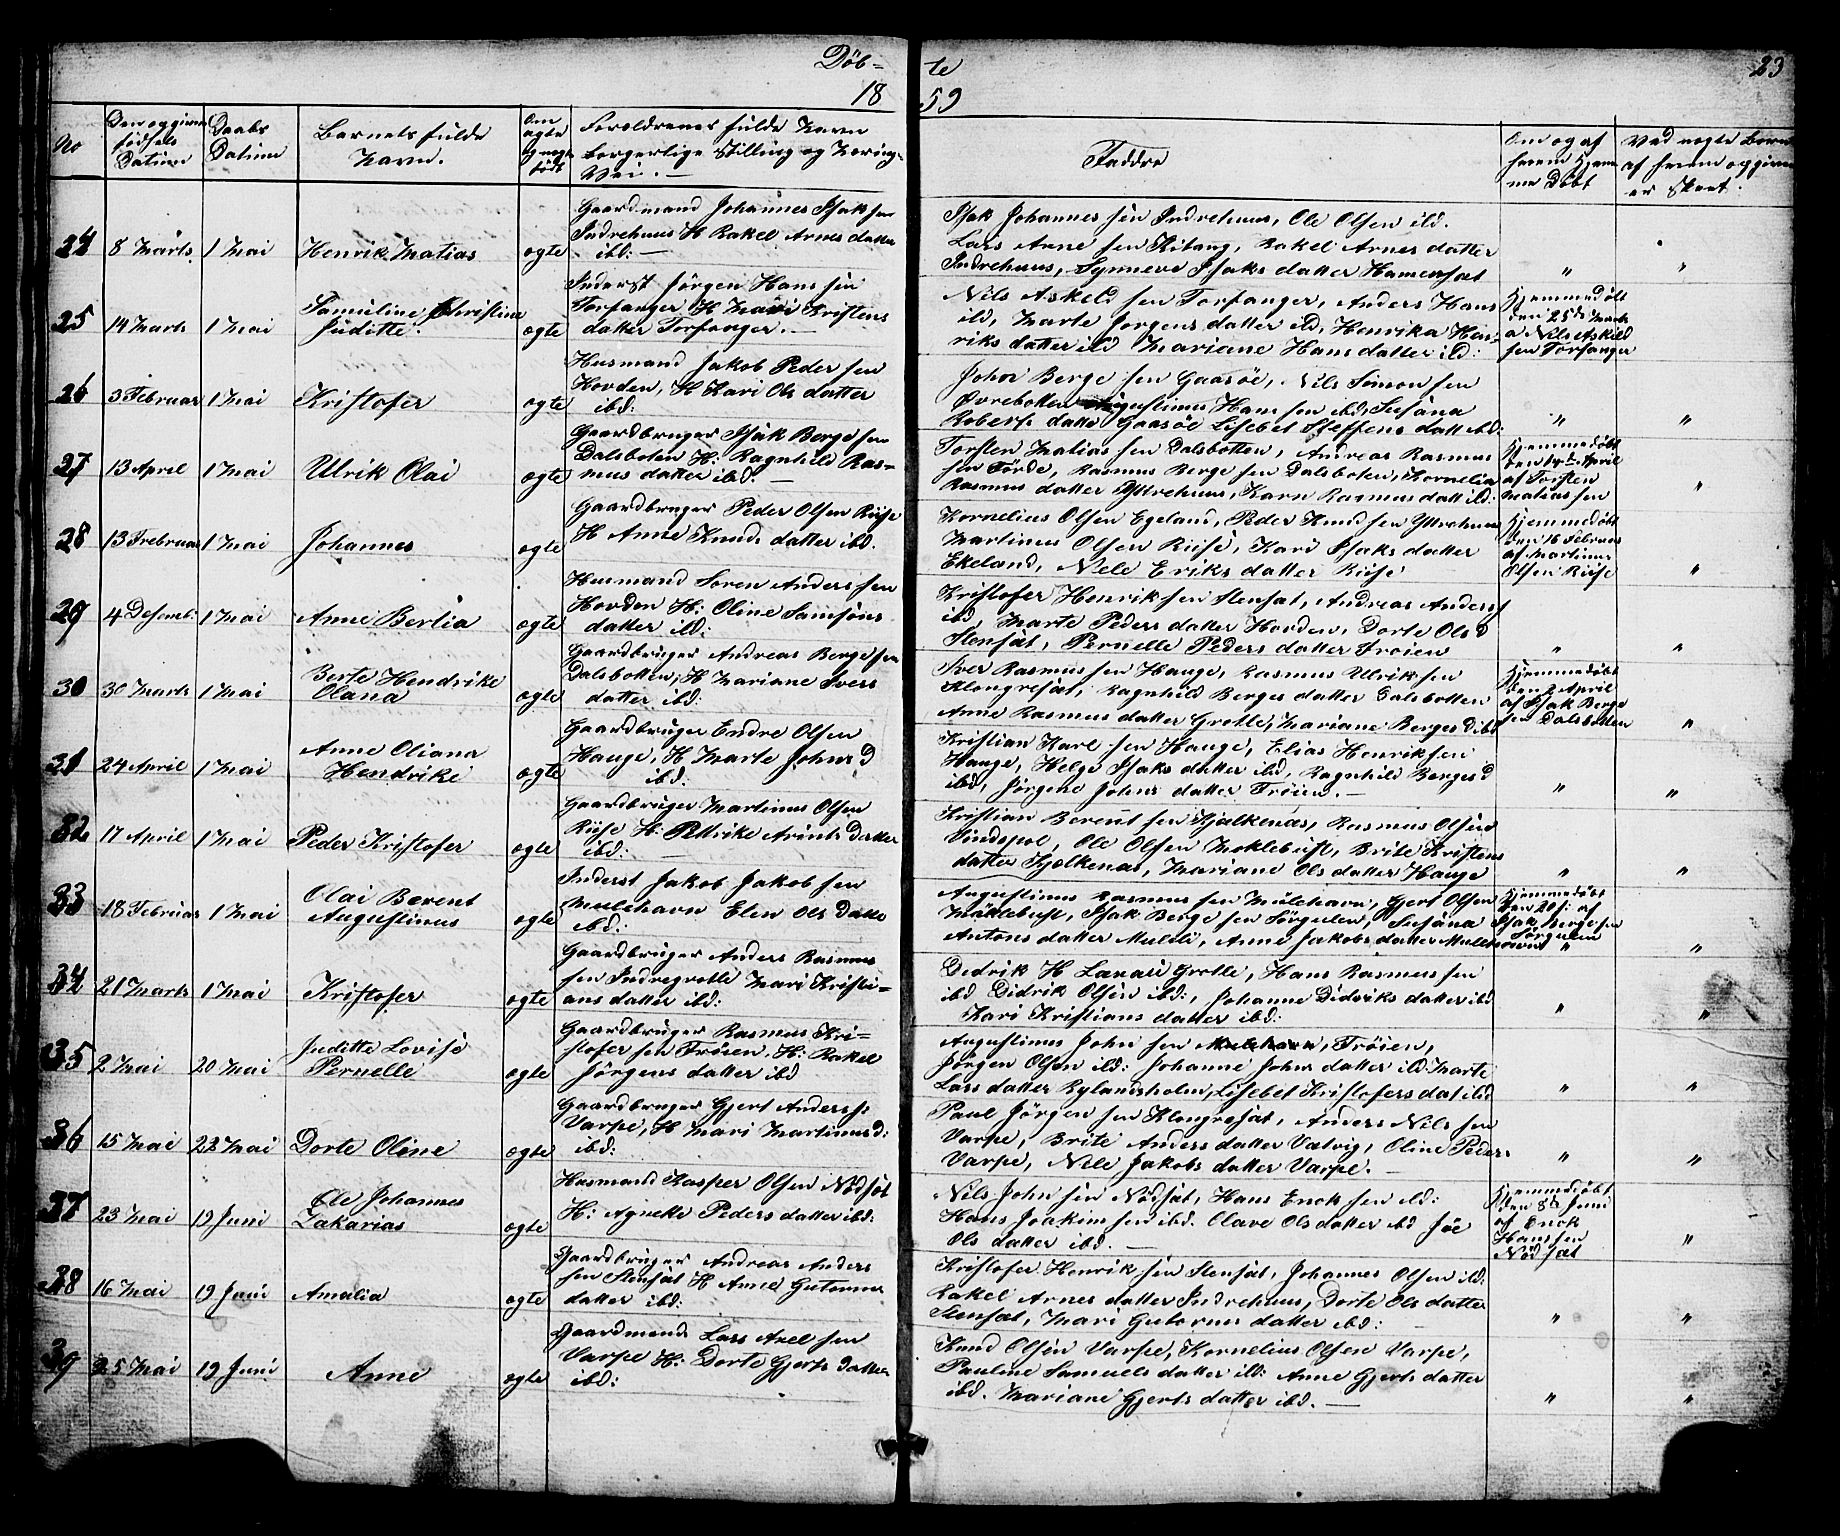 Döb-
te
23
18
59
No
Den opgivne fødsels Datum
Daabs Datum
Barnets fulde Navn.
Om ægte og uægte født
Foreldrenes fulde Navn borgerlige Stilling og Næringsvei. —
Faddre
Om og af hvem hjemme Döbt
Ved uægte Børn af hvem opgivne er skeet.
24
8 Marts
1 Mai
Henrik Matias
ægte
Gaardmand Johannes Isaksen
Indrehuus H Rakel Arnes datter
ibd: —
Isak Johannes sen Indrehuus, Ole Olsen ibd.
Lars Arne sen Kibang, Rakel Arnes datter
Indrehuus, Synneve Isaks datter Hamersæt
25
14 Marts
1 Mai
Samuline Christine
Juditte.
ægte
Inderst Jörgen Hans sen
Torfanger H Mari Kristens
datter Torfanger. —
Nils Askeld sen Torfanger, Anders Hans
ibd, Marte Jorgens datter ibd, Henrika Hen-
riks datter ibd Mariane Hans datter ibd:
Hjemmedöbt
den 25de Marts
a Nils Askild
sen Torfanger
26
3 Februar
1 Mai
Kristofer
ægte
Husmand Jakob Peder sen
Hovden, H Kari Ols datter
ibd:
John Berge sen Gaasöe, Nils Simon sen
Övrebotten Augustinus Hans sen ibd, Susána
Roberts datter Gaasöe Lisebet Steffens datt ibd:
27
13 April
1 Mai
Ulrik Olai
ægte
Gaardbruger Isak Berge sen
Dalsboten H: Ragnhild Ras-
mus datter ibd. —
Torsten Matias sen Dalsbotten, Andreas Rasmus
sen Förde, Rasmus Berge sen Dalsboten, Kornelia
Rasmus datter Yttrehuus, Karn Rasmus datt ibd:
Hjemmedöbt
den 14de April
af Torsten
Matias sen
28
13 Frebruar
1 Mai
Johannes
ægte
Gaardbruger Peder Olsen Riise
H Anne Knuds datter ibd.
Kornelius Olsen Egeland, Peder Knud sen Yttrehuus
Martinus Olsen Riise, Kari Isaks datter
Ekeland, Nele Eriks datter Riise
Hjemmedöbt
den 16 Februar
af Martinus
Olsen Riise
29
4 Desemb.
1 Mai
Anne Bertia
ægte
Husmand Soren Anders sen
Hovden H: Oline Samsöns
datter ibd:
Kristofer Henrik sen Stensæt, Andreas Anders
ibd, Marte Peders datter Hovden, Dorte Ols d
Stensæt, Pernelle Peders datter Froien
30
30 Marts
1 Mai
Berte Hendrike
Olana
ægte
Gaardbruger Andreas Berge sen
Dalsbotten, H Mariane Ivers
datter ibd:
Iver Rasmus sen Hauge, Rasmus Ulrik sen
Klongresæt, Ragnhild Berges datter Dalsbotten
Anne Rasmus datter Grotte, Mariane Berges d ibd
Hjemmedöbt
den 2 April
af Isak Berge
sen Dalsbotten
31
24 April
1 Mai
Anne Oliana
Hendrike
ægte
Gaardbruger Endre Olsen
Hauge, H Marte Johns d
ibd:
Kristian Karl sen Hauge, Elias Henriksen
Hauge, Helge Isaks datter ibd, Ragnhild Berges d
ibd, Jörgine Johns datter Tröien. —
32
17 April
1 Mai
Peder Kristofer
ægte
Gaardbruger Martinus Olsen
Riise H: Pettrike Arints datter
ibd: —
Kristian Berent sen Hjelkenæs, Rasmus Olsen
Vindspol, Ole Olsen Moklebust, Brite Kristens
datter Hjelkenæs, Mariane Ols datter Hauge
33
18 Februar
1 Mai
Olai Berent
Augustinus
ægte
Inderst Jakob Jakob sen
Mulehavn Elen Ols datter
ibd:
Augustinus Rasmus sen Mulehavn, Gjert Olsen
Mäklebust, Isak Berge sen Sörgulen, Susána
Antons datter Muleli, Anne Jakobs datter Mulehavn
Hjemmedöbt
den 20de af
Isak Berge sen
Sörgulen
34
21 Marts
1 Mai
Kristofer
ægte
Gaardbruger Anders Rasmus
sen Indregrotte Mari Kristi-
ans datter ibd:
Dedrik H Lanari Grotte, Hans Rasmus sen
ibd Didrik Olsen ibd:, Johanne Didriks datter ibd
Kari Kristians datter ibd:
35
2 Mai
20 Mai
Juditte Lovise
Pernelle
ægte
Gaardbruger Rasmus Kri-
stofer sen Fröien, H: Rakel
Jörgens datter ibd
Augustinus John sen Mulehavn, Fröien,
Jörgen Olsen ibd: Johanne Johns datter ibd: Marte
Lars datter Rylandsholm, Lisebet Kristofers dat ibd
36
15 Mai
22 Mai
Dorte Oline
ægte
Gaardbruger Gjert Anders s:
Varpe, H Mari Martinus d:
ibd:
Paul Jörgen sen Klongresæt, Anders Nils sen
Varpe, Brite Anders datter Vatvig, Oline Peders
Varpe, Nele Jakobs datter Varpe. —
37
23 Mai
19 Juni
Ole Johannes
Zakarias
ægte
Husmand Kasper Olsen Nödsæt
H: Agneke Peders datter ibd:
Nils John sen Nödsæt, Hans Enok sen ibd:
Hans Joakim sen ibd. Olave Ols datter ibd Jöe
Ols datter ibd. —
Hjemmedöbt
den 8de Juni
af Enok
Hans sen
Nödsæt
38
16 Mai
19 Juni
Amalia
ægte
Gaardbruger Andreas Anders
sen Stensæt H Anne Gutorms
datter ibd:
Kristofer Henrik sen Stensæt, Johannes Olsen ibd.
Rakel Arnes datter Indrehuus, Dorte Ols datter
Stensæt, Mari Gutormes datter ibd:
39
25 Mai
19 Juni
Anne
ægte
Gaardmand Lars Axel sen
Varpe H: Dorte Gjerts datter
ibd:
Knud Olsen Varpe, Kornelius Olsen Varpe,
Pauline Samuels datter ibd: Anne Gjerts datter
ibd. Mariane Gjerts datter ibd. —